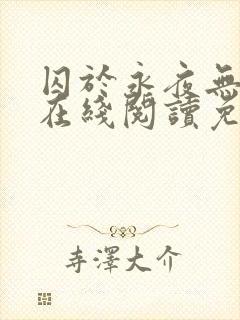 囚於永夜無
在綫閱讀免
寺澤大介